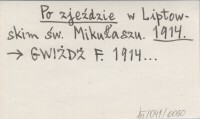 Po zjeździe w Liptow-
skim św. Mikułaszu. 1914.
→ GWIŻDŻ F. 1914...